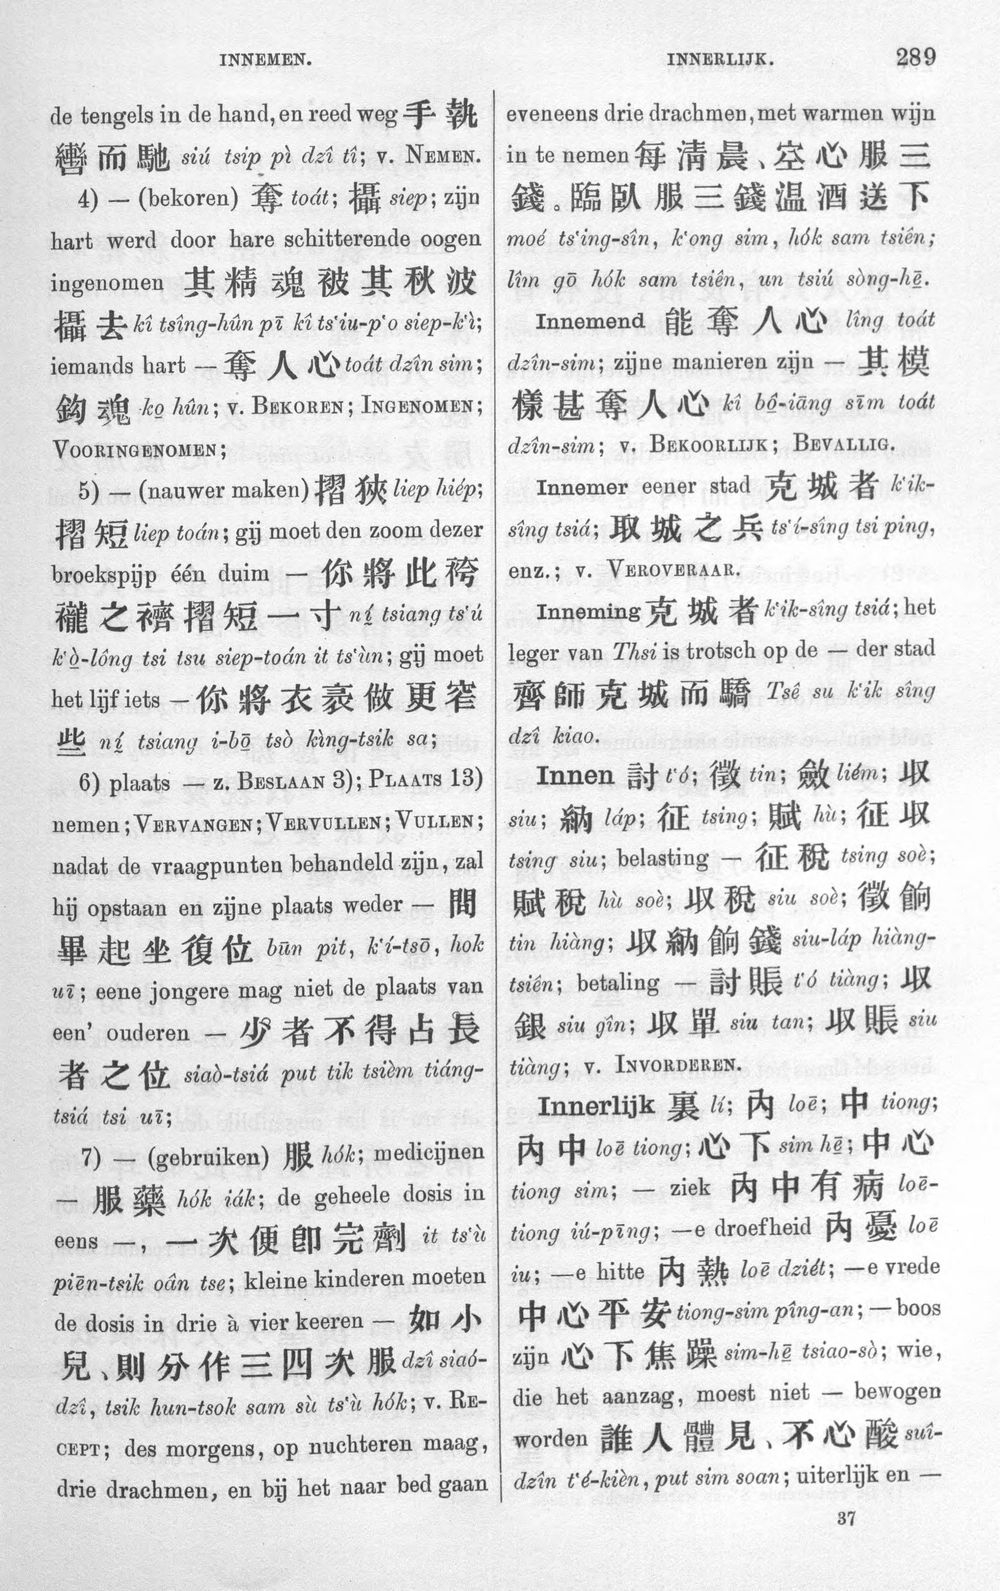 INNEMEN.
INNERLIJK.
289
de tengels in de hand, en reed weg 手執
轡而馳 siú tsip pì dzî tî; v. NEMEN.
4) — (bekoren) 奪 toát; 攝 siep; zijn
hart werd door hare schitterende oogen
ingenomen 其精魂被其秋波
攝去 kî tsîng-hûn pī kî ts'iu-p'o siep-k'ì;
iemands hart — 奪人心 toát dzîn sim;
鈎魂 ko hûn; v. BEKOREN; INGENOMEN;
VOORINGENOMEN;
5) — (nauwer maken) 摺狹 liep hiép;
摺短 liep toán; gij moet den zoom dezer
broekspijp één duim — 你將此袴
襱之襀摺短一寸 ní tsiang ts'ú
k'ò-lông tsi tsu siep-toán it ts'ùn; gij moet
het lijf iets — 你將衣裘做更窄
些 ní tsiang i-bō tsò kìng-tsik sa;
6) plaats — z. BESLAAN 3); PLAATS 13)
nemen; VERVANGEN; VERVULLEN; VULLEN;
nadat de vraagpunten behandeld zijn, zal
hij opstaan en zijne plaats weder — 問
畢起坐復位 būn pit, k'í-tsō, hok
uī; eene jongere mag niet de plaats van
een' ouderen — 少者不得占長
者之位 siaò-tsiá put tik tsièm tiáng-
tsiá tsi uī;
7) — (gebruiken) 服 hók; medicijnen
— 服藥 hók iák; de geheele dosis in
eens —, 一次便卽完劑 it ts'ù
piēn-tsik oân tse; kleine kinderen moeten
de dosis in drie à vier keeren — 如小
兒、則分作三四次服 dzî siaó-
dzî, tsik hun-tsok sam sù ts'ù hók; v. RE-
CEPT; des morgens, op nuchteren maag,
drie drachmen, en bij het naar bed gaan
eveneens drie drachmen, met warmen wijn
in te nemen 每清晨、空心服三
錢。臨臥服三錢温酒送下
moé ts'ing-sîn, k'ong sim, hók sam tsiên;
lîm gō hók sam tsiên, un tsiú sòng-hē.
Innemend 能奪人心 lîng toát
dzîn-sim; zijne manieren zijn — 其模
樣甚奪人心 kî bô-iāng sīm toát
dzîn-sim; v. BEKOORLIJK; BEVALLIG.
Innemer eener stad 克城者 k'ik-
sîng tsiá; 取城之兵 ts'í-sîng tsi ping,
enz.; v. VEROVERAAR.
Inneming 克城者 k'ik-sîng tsiá; het
leger van Thsi is trotsch op de — der stad
齊師克城而驕 Tsê su k'ik sîng
dzî kiao.
Innen 討 t'ó; 徵 tin; 斂 liém; 収
siu; 納 láp; 征 tsing; 賦 hù; 征収
tsing siu; belasting — 征稅 tsing soè;
賦稅 hù soè; 収稅 siu soè; 徵餉
tin hiàng; 収納餉錢 siu-láp hiàng-
tsiên; betaling — 討賬 t'ó tiàng; 収
銀 siu gîn; 収單 siu tan; 収賬 siu
tiàng; v. INVORDEREN.
Innerlijk 裏 lí; 內 loē; 中 tiong;
內中 loē tiong; 心下 sim hē; 中心
tiong sim; — ziek 內中有病 loē-
tiong iú-pīng; —e droefheid 內憂 loē
iu; —e hitte 內熱 loē dziét; —e vrede
中心平安 tiong-sim pîng-an; — boos
zijn 心下焦躁 sim-hē tsiao-sò; wie,
die het aanzag, moest niet — bewogen
worden 誰人體見、不心酸 suî-
dzîn t'é-kièn, put sim soan; uiterlijk en —
37